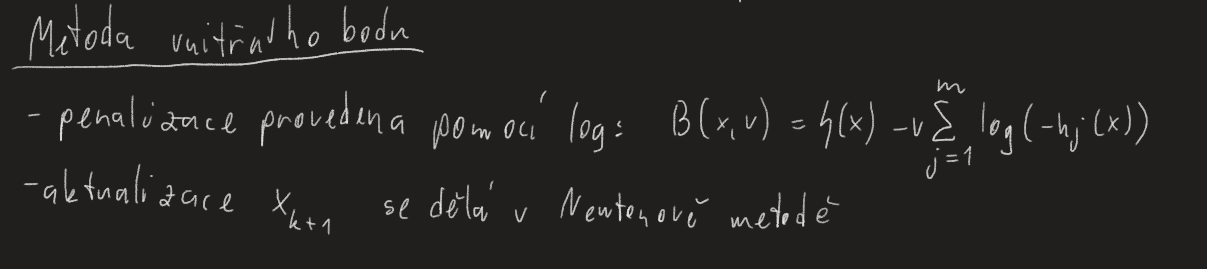 Metoda vnitřního bodu
- penalizace provedena pomocí log: B(x,v) = f(x) - v∑_{j=1}^{m} log(-h_j(x))
- aktualizace x_{k+1} se dělá v Newtonově metodě